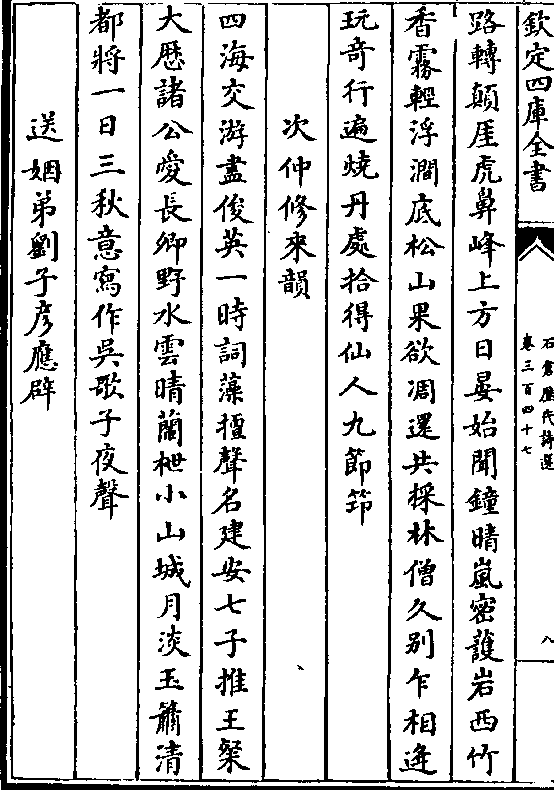 欽定四庫全書
石倉歷代詩選
卷三百四十七
八
路轉顛厓虎鼻峰上方日晏始聞鐘晴嵐密護岩西竹
香霧輕浮澗底松山果欲凋還共採林僧久别乍相逢
玩奇行遍燒丹處拾得仙人九節筇
次仲修來韻
四海交游盡俊英一時詞藻擅聲名建安七子推王粲
大厯諸公愛長卿野水雲晴蘭枻小山城月淡玉簫清
都將一日三秋意寫作吳歌子夜聲
送姻弟劉子彦應辟